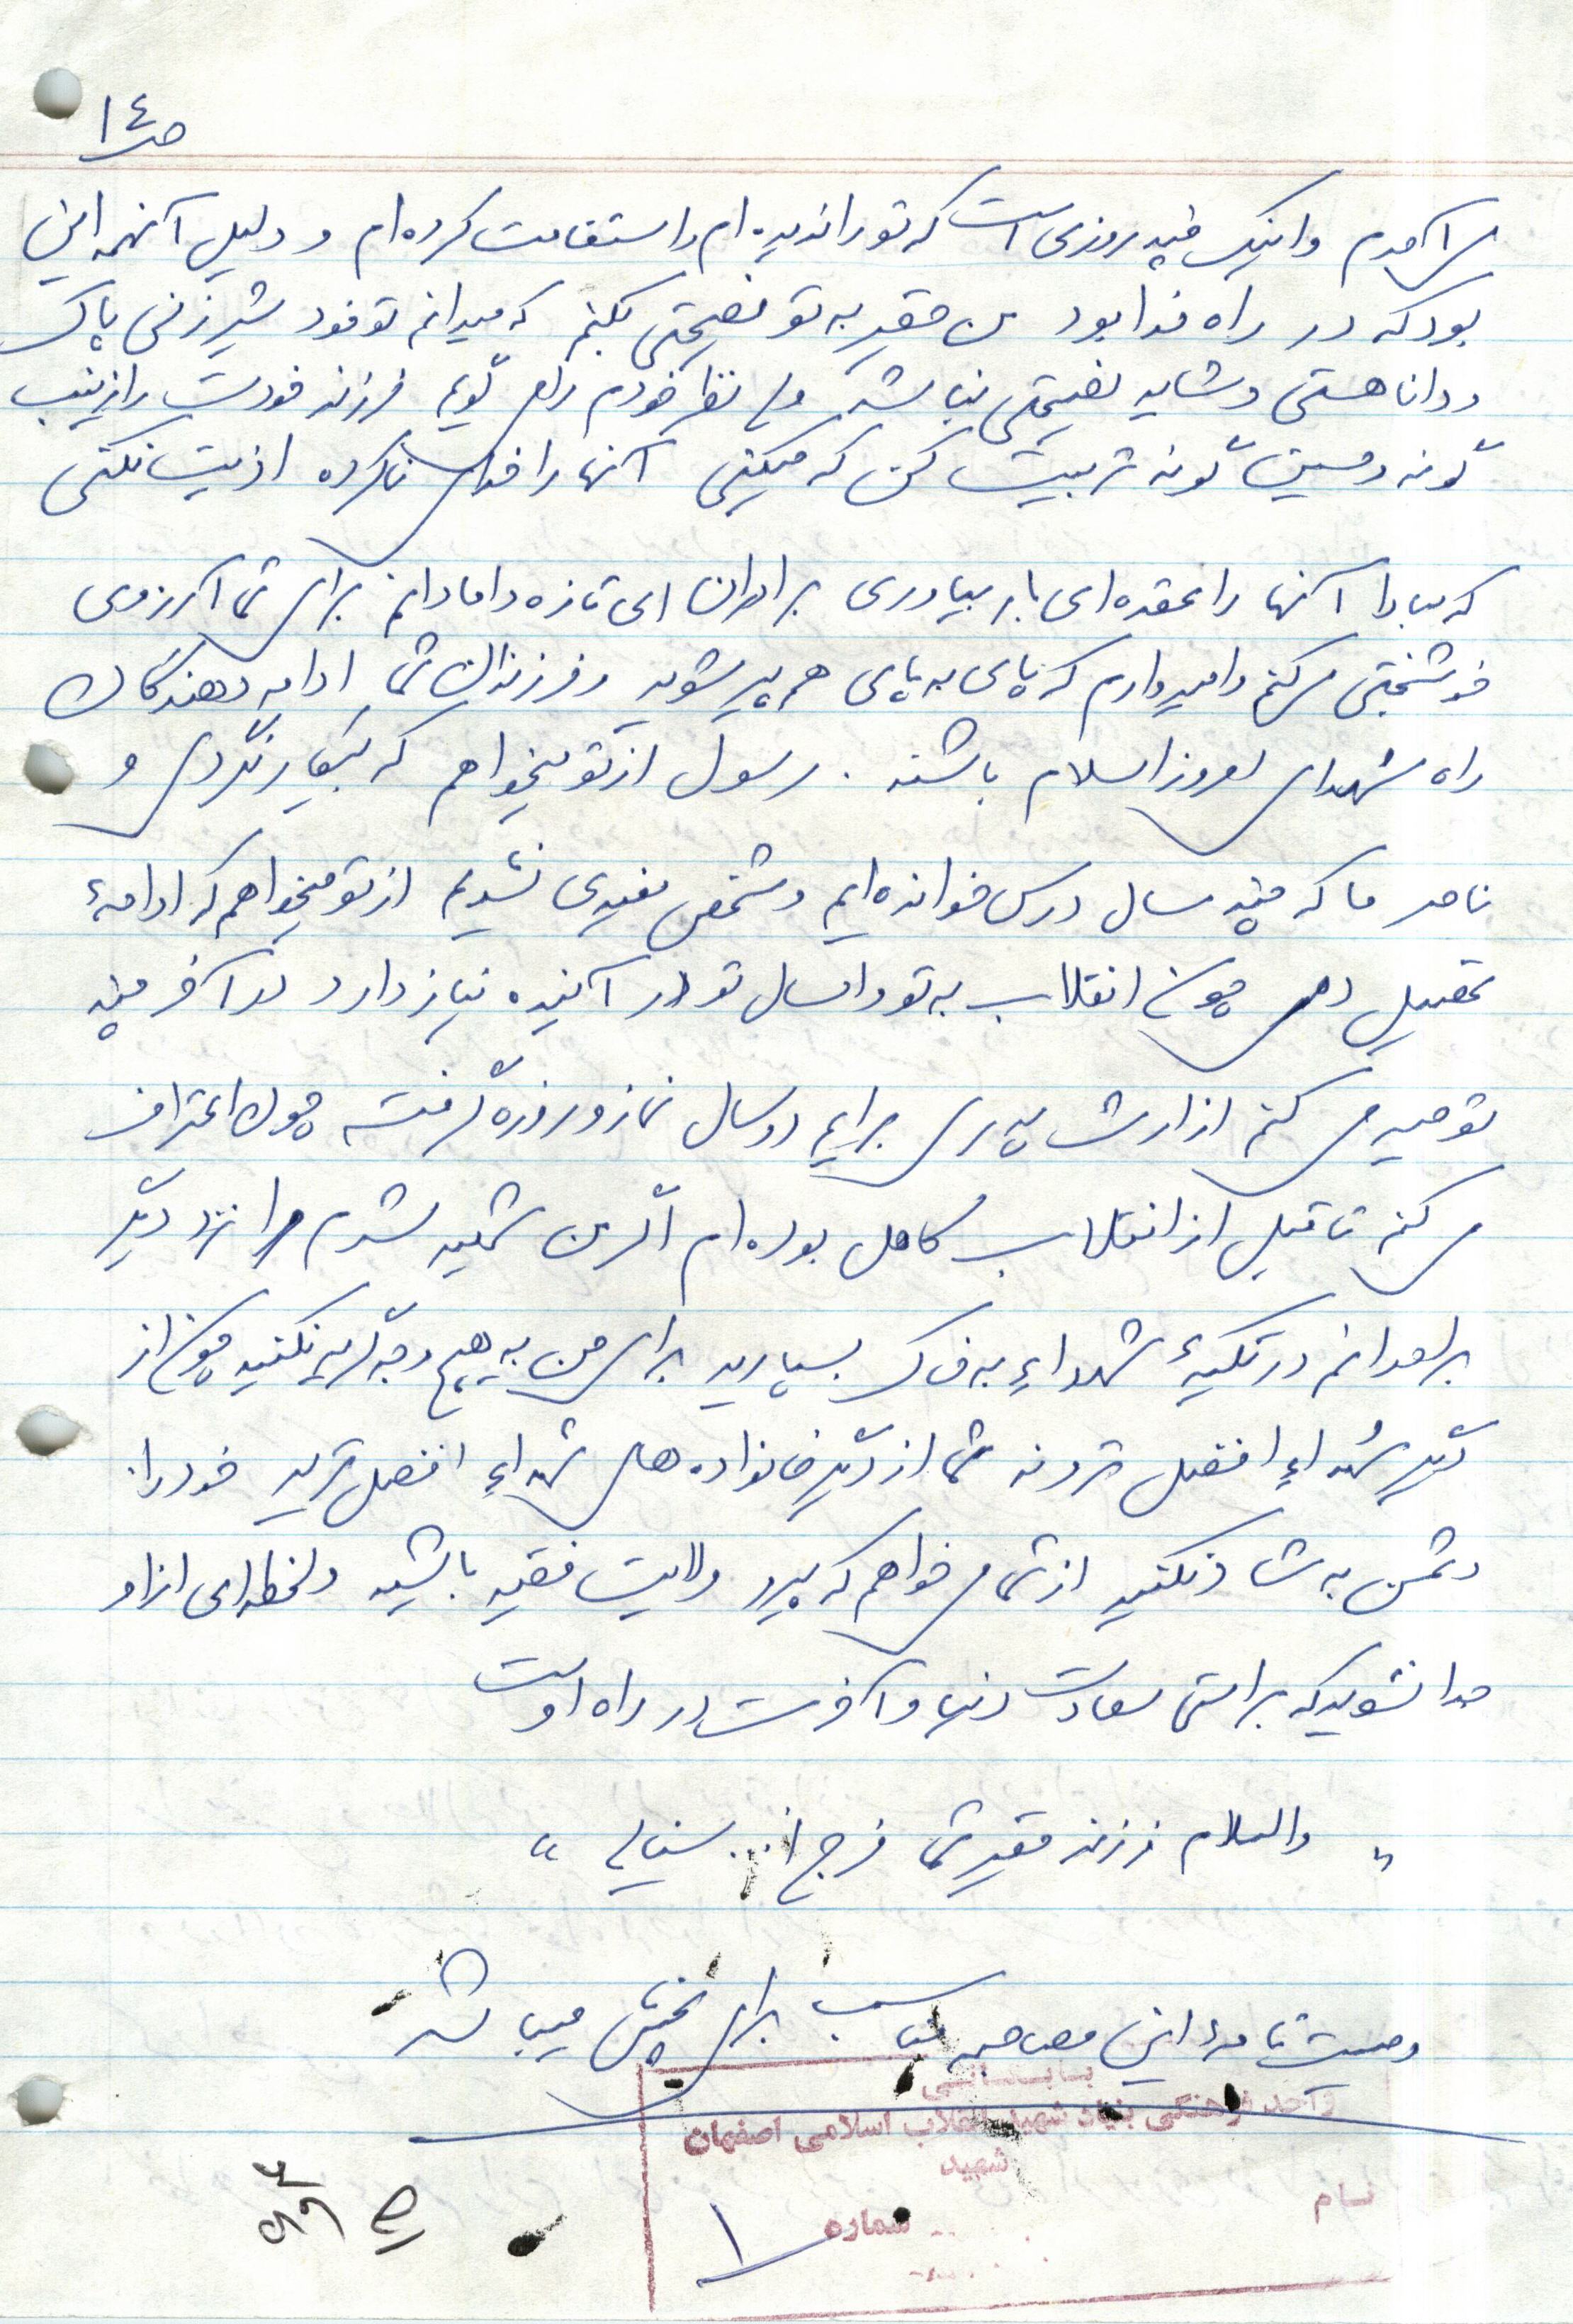 ص ۱۴
آمدم و اینک چند روزی است که تو را ندیده‌ام و استقامت کرده‌ام و دلیل آنهمه این
بود که در راه خدا بود من حقیر به تو نصیحتی بکنم که میدانم تو خود شیرزنی پاک
و دانا هستی و شاید نصیحتی نباشد ولی نظر خودم را می گویم فرزند خودت را زینب
گونه و حسین گونه تربیت کن که میکنی آنها را خدای ناکرده اذیت نکنی
که مبادا آنها را عقده‌ای بار بیاوری برادران ای تازه دامادانم برای شما آرزوی
خوشبختی می کنم و امیدوارم که پای به پای هم پیر شوید و فرزندان شما ادامه دهندگان
راه شهدای امروز اسلام باشند . رسول از تو میخواهم که بیکار نگردی و
ناصر ما که چند سال درس خوانده‌ایم و شخص مفیدی نشدیم از تو میخواهم که ادامهٔ
تحصیل دهی چون انقلاب به تو و امسال تو در آینده نیاز دارد در آخر چند
توصیه می کنم از ارث پدری برایم دو سال نماز و روزه گرفته چون اعتراف
می کنم تا قبل از انقلاب کاهل بوده‌ام اگر من شهید شدم مرا نزد دیگر
برادرانم در تکیهٔ شهداء به خاک بسپارید برای من به هیچ وجه گریه نکنید چون نه از
دیگر شهداء افضل تر و نه شما از دیگر خانواده های شهداء افضل ترید خود را
دشمن به شاد نکنید از شما می خواهم که پیرو ولایت فقیه باشید و لحظه‌ای از او
جدا نشوید که براستی سعادت دنیا و آخرت در راه اوست
" والسلام فرزند حقیر شما فرج ا... سینایی "
وصیت نامهٔ این مصاحبه مناسب برای پخش میباشد
بایگانی
واحد فرهنگی بنیاد شهید انقلاب اسلامی اصفهان
شهید
نام
شماره
۱